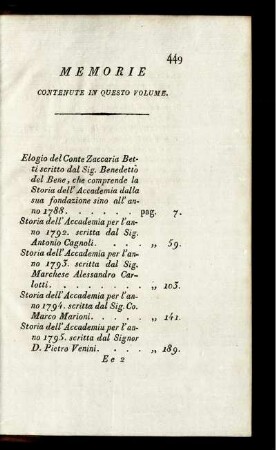 449
MEMORIE
CONTENUTE IN QUESTO VOLUME.
Elogio del Conte Zaccaria Bet-
ti scritto dal Sig. Benedetto
del Bene, che comprende la
Storia dell'Accademia dalla
sua fondazione sino all'an-
no 1788. . . . . . pag. 7.
Storia dell'Accademia per l'an-
no 1792. scritta dal Sig.
Antonio Cagnoli. . . . „ 59.
Storia dell'Accademia per l'an-
no 1793. scritta dal Sig.
Marchese Alessandro Car-
lotti. . . . . . . . „ 103.
Storia dell'Accademia per l'an-
no 1794. scritta dal Sig. Co.
Marco Marioni. . . . . „ 141.
Storia dell'Accademia per l'an-
no 1795. scritta dal Signor
D. Pietro Venini. . . . „ 189.
E e 2